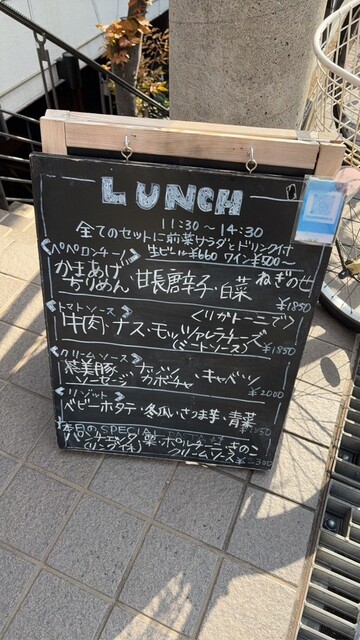 LUNCH
11:30～14:30
全てのセットに前菜サラダとドリンク付
生ビール¥660 ワイン¥500～
＜ペペロンチーノ＞
かまあげちりめん・甘長唐辛子・白菜 ねぎの世
¥1850
＜トマトソース＞ ＜リガトーニで＞
牛肉・ナス・モッツァレラチーズ
(ミートソース) ¥1850
＜クリームソース＞
ソーセージ カボチャ ・キャベツ
¥2000
＜リゾット＞
ベビーホタテ・冬瓜・さつま芋・青菜
本日のSPECIAL
パンチェッタ ・ポルチーニ きのこ
(リングイネ) クリームソース